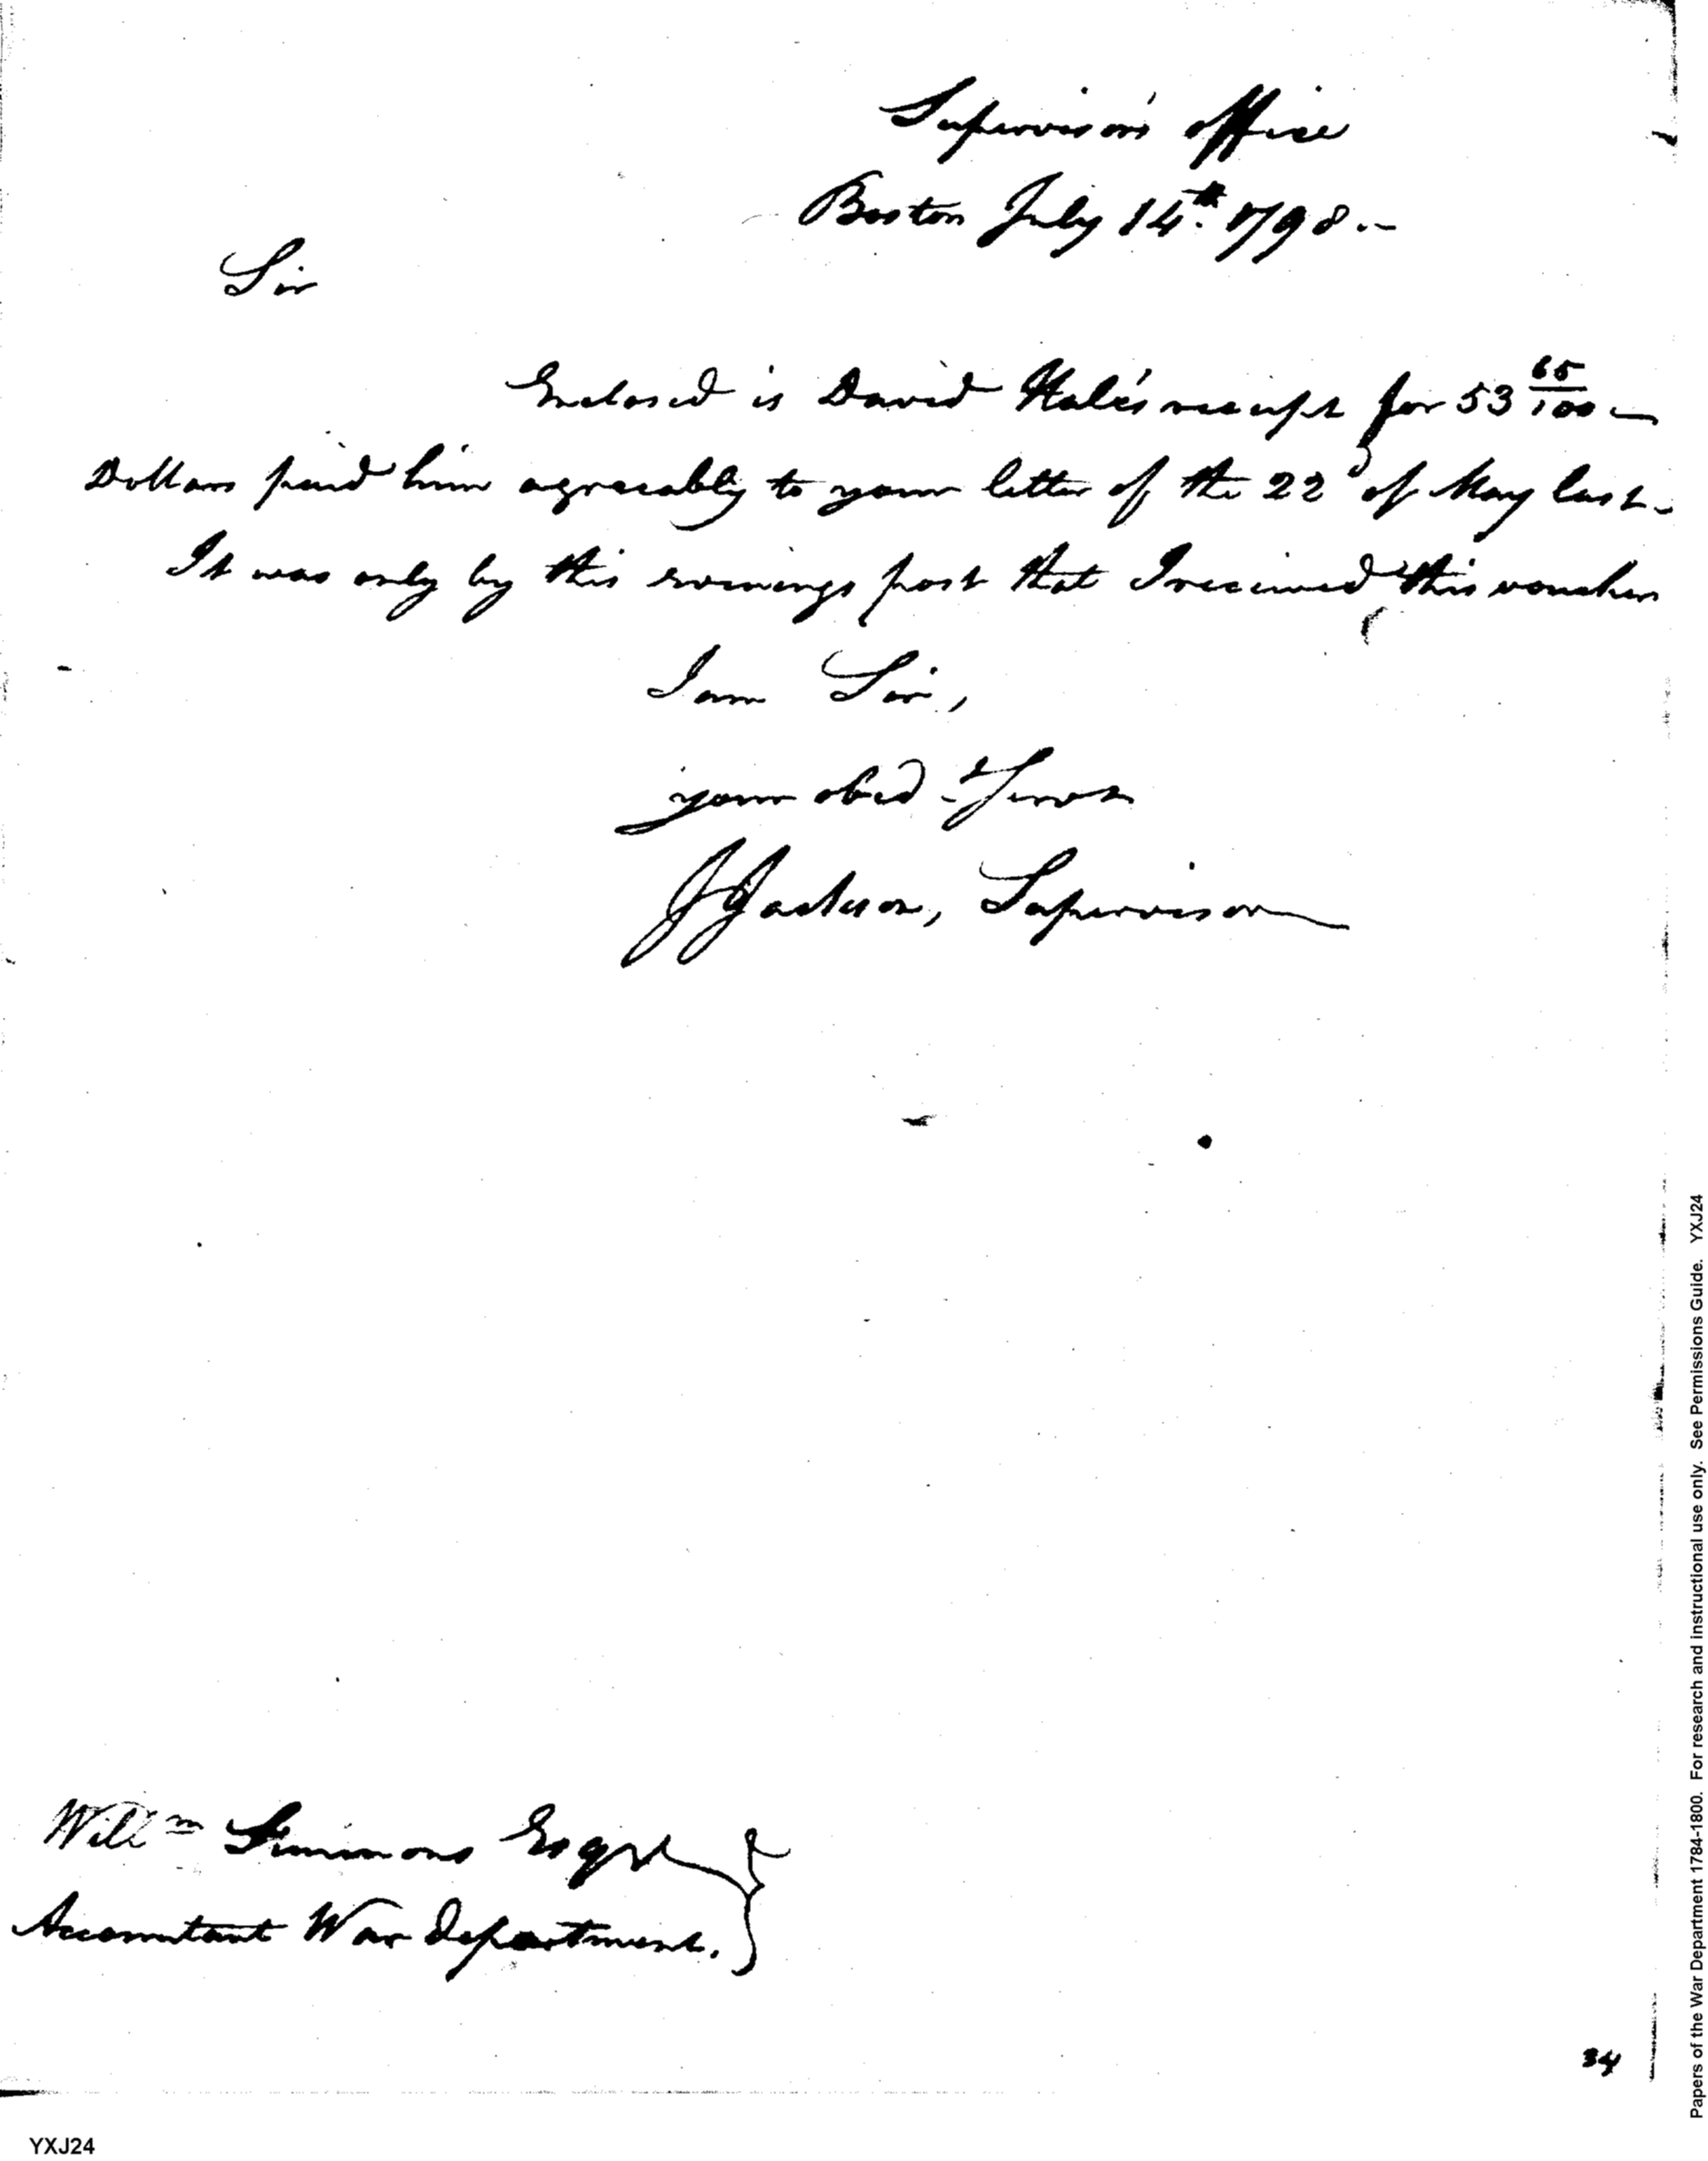 Supervisor's office
Boston July 14th. 1798.-
Sir
Enclosed is David Hale's receipt for 53 65/100 -
Dollars paid him agreeably to your letter of the 22d of May last.-
It was only by this evenings post that I received this voucher
I am Sir,
your obed Servt
J Jackson, Supervisor
Willm Simmons Esqr
Accountant War Department.
34
YXJ24
Papers of the War Department 1784-1800. For research and instructional use only. See Permissions Guide. YXJ24